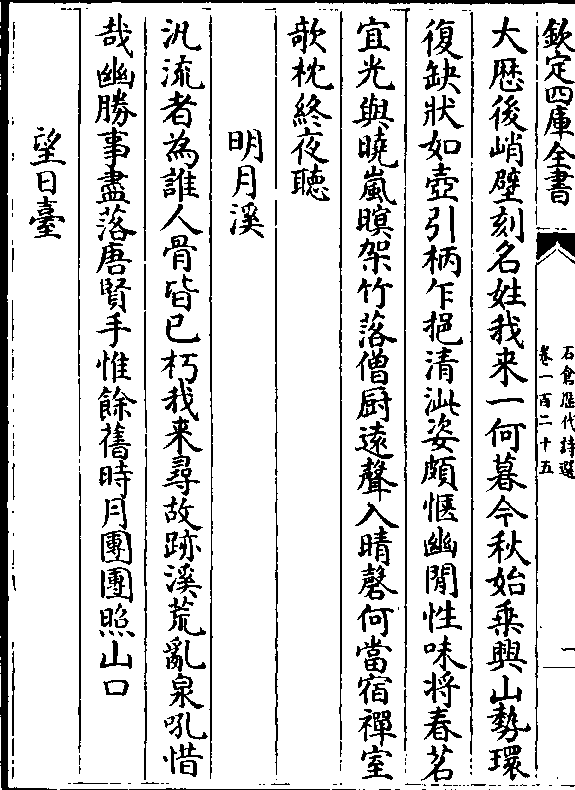 欽定四庫全書
石倉歴代詩選
卷一百二十五
一
大歴後峭壁刻名姓我来一何暮今秋始乗興山勢環
復缺狀如壺引柄乍挹清泚姿頗愜幽閒性味将春茗
宜光與曉嵐暝架竹落僧厨逺聲入晴磬何當宿禪室
欹枕終夜聽
明月溪
汎流者為誰人骨皆已朽我来尋故跡溪荒亂泉吼惜
哉幽勝事盡落唐賢手惟餘舊時月團團照山口
望日臺